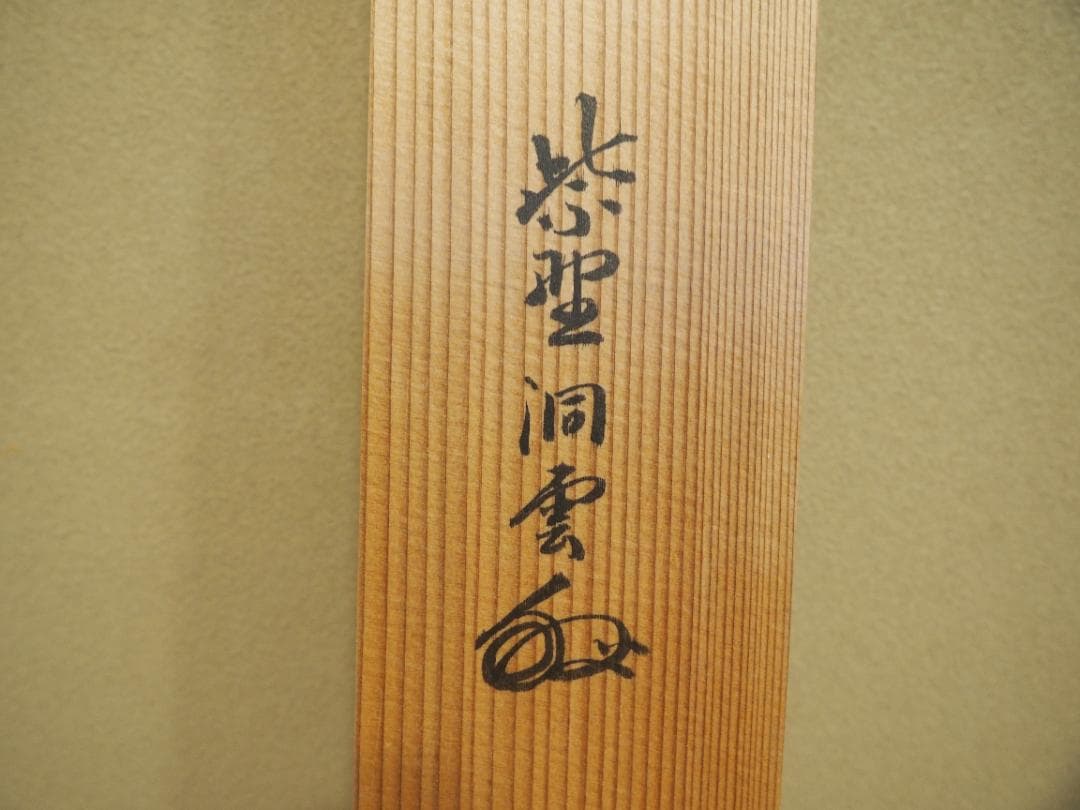 紫野洞雲